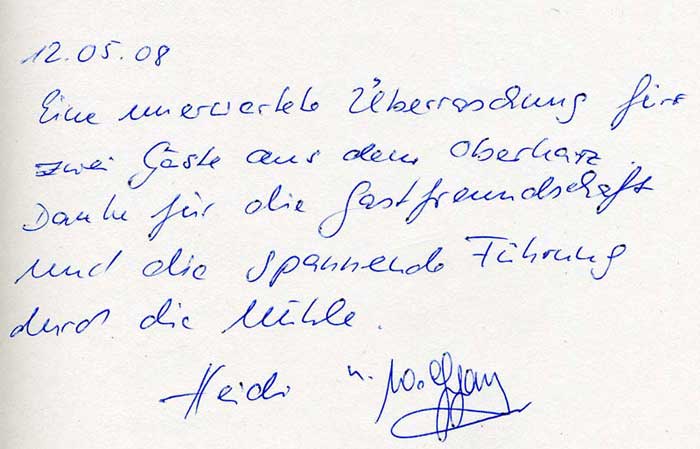 12.05.08
Eine unerwartete Überraschung für
zwei Gäste aus dem Oberharz.
Danke für die Gastfreundschaft
und die spannende Führung
durch die Mühle.
Heidi u. Wolfgang